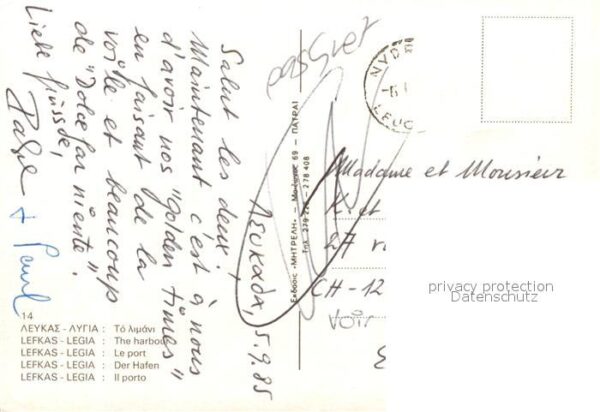 Λευκάδα, 5.9.85
Salut les deux,
Maintenant c'est à nous
d'avoir nos "golden times"
en faisant de la
voile et beaucoup
de "Dolce far niente".
Liebi Grüsse,
+ Paul
14
ΛΕΥΚΑΣ - ΛΥΓΙΑ : Τό λιμάνι
LEFKAS - LEGIA : The harbour
LEFKAS - LEGIA : Le port
LEFKAS - LEGIA : Der Hafen
LEFKAS - LEGIA : Il porto
Εκδοσις «ΜΗΤΡΕΛΗ» — 69 — ΠΑΤΡΑΙ
Τηλ. 278 408
Madame et Monsieur
et
27 r
CH-12
voir
privacy protection
Datenschutz